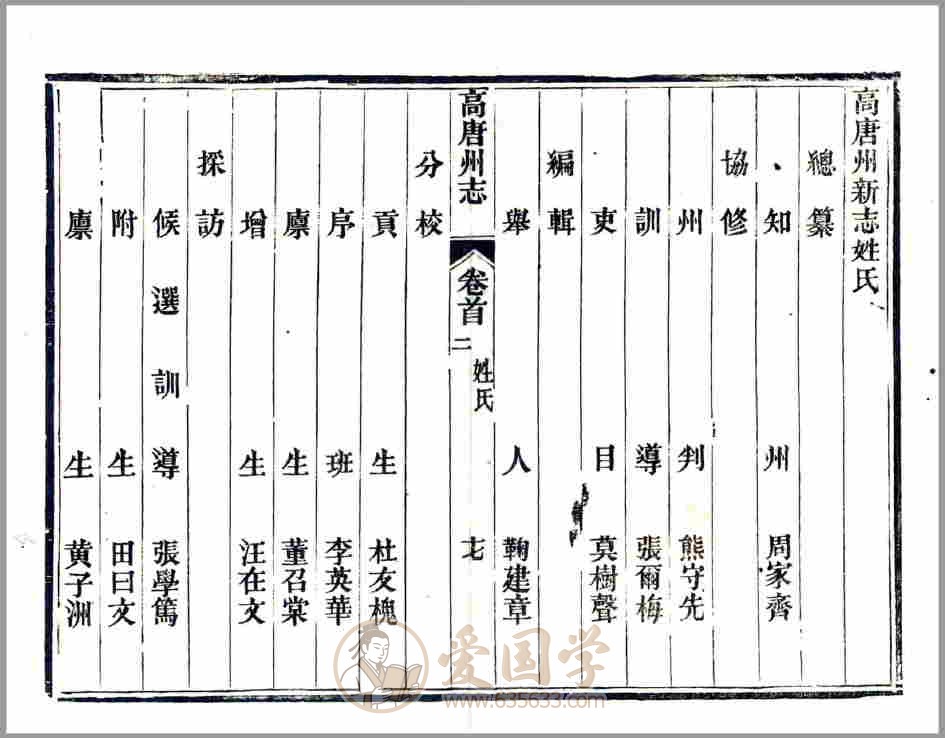 高唐州新志姓氏
總纂
知州 周家齊
協修
州判 熊守先
訓導 張爾梅
吏目 莫樹聲
編輯
舉人 鞠建章
高唐州志 卷首二 姓氏 七
分校
貢生 杜友槐
序班 李英華
廪生 董召棠
增生 汪在文
採訪
候選訓導 張學篤
附生 田曰文
廪生 黄子洲
爱国学
www.635633.com